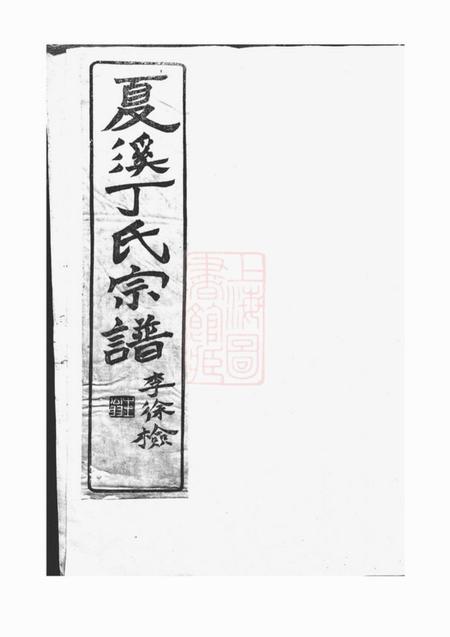 夏溪丁氏宗譜
李徐檢
上海圖
書館藏